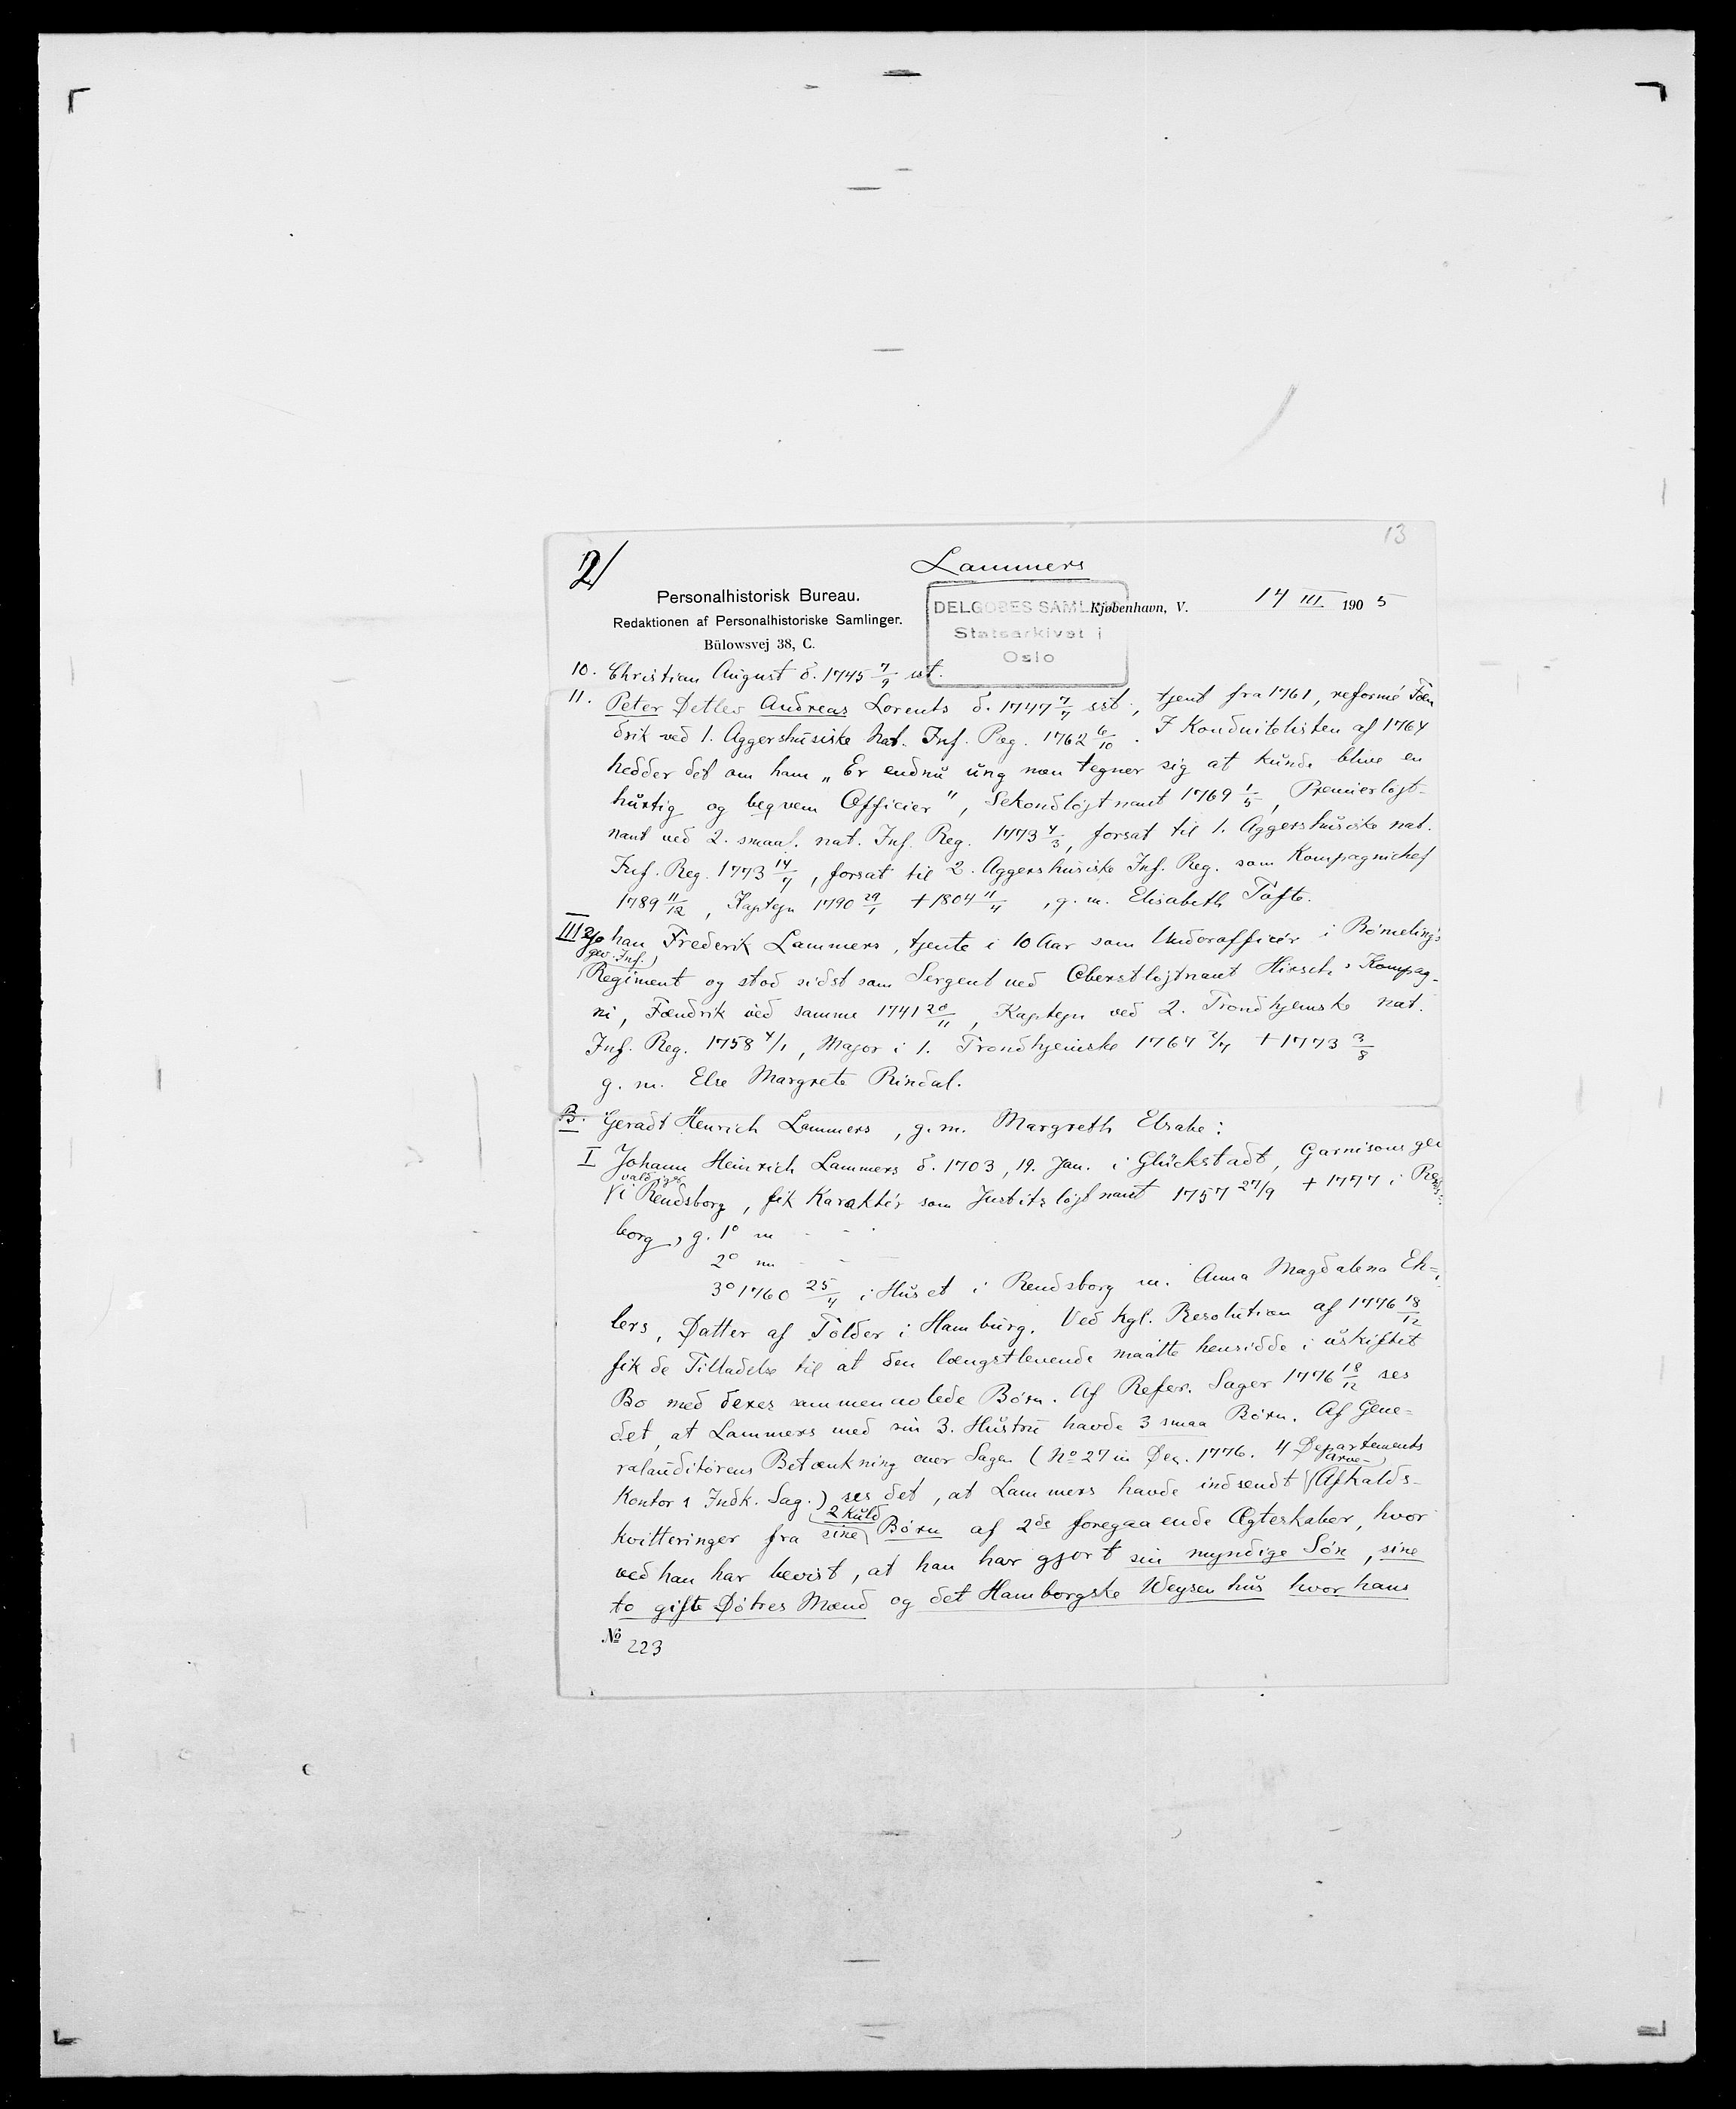 13
2/
Lammers
Personalhistorisk Bureau.
Redaktionen af Personalhistoriske Samlinger.
Bülowsvej 38, C.
DELGOBES SAMLING
Statsarkivet i
Oslo
Kjøbenhavn, V. 14 III 1905
10. Christian August d. 1745 7/9 sst.
11. Peter Detlev Andreas Lorents d. 1747 7/7 sst., tjent fra 1761, reformé Fæn
drik ved 1. Aggershusiske Nat. Inf. Reg. 1762 6/10. I Konduitelisten af 1764
hedder det om ham „Er endnu ung men tegner sig at kunde blive en
hurtig og beqvem Officier", Sekondløjtnant 1769 1/5, Premierløjt-
nant ved 2. smaal. nat. Inf. Reg. 1773 4/3, forsat til 1. Aggershusiske nat.
Inf. Reg. 1773 14/7, forsat til 2. Aggershusiske Inf. Reg. som Kompagnichef
1789 11/12, Kaptejn 1790 29/1 + 1804 11/4, g. m. Elisabeth Tofte.
III Johan Frederik Lammers, tjente i 10 Aar som Underofficér i Rømelings
gev. Inf.
Regiment og stod sidst som Sergent ved Oberstløjtnant Hirsch's Kompag-
ni, Fændrik ved samme 1741 20/11, Kaptejn ved 2. Trondhjemske nat.
Inf. Reg. 1758 4/1, Major i 1. Trondhjemske 1767 2/7 + 1773 3/8
g. m. Else Margrete Rindal.
B. Geradt Henrich Lammers, g. m. Margreth Elsabe:
I Johann Heinrich Lammers d. 1703, 19. Jan. i Glückstadt, Garnisons ge
valdiger
i Rendsborg, fik Karaktér som Justits løjtnant 1757 27/9 + 1777 i Rends-
borg, g. 1° m - -
2° m - -
3° 1760 25/4 i Huset i Rendsborg m. Anna Magdalena Eh-
lers, Datter af Tolder i Hamburg. Ved kgl. Resolution af 1776 18/12
fik de Tilladelse til at den længstlevende maatte hensidde i uskiftet
Bo med deres sammenavlede Børn. Af Refer. Sager 1776 18/12 ses
det, at Lammers med sin 3. Hustru havde 3 smaa Børn. Af Gene-
ralauditørens Betænkning over Sagen (No 27 in Dec. 1776. 4 Departements
Kontor s Indk. Sag.) ses det, at Lammers havde indsendt (Arve-) Afkalds-
kvitteringer fra sine 2 Kuld Børn af 2de foregaaende Ægteskaber, hvor
ved han har bevist, at han har gjort sin myndige Søn, sine
to gifte Døtres Mænd og det Hamborgske Weysenhus hvor hans
No 223